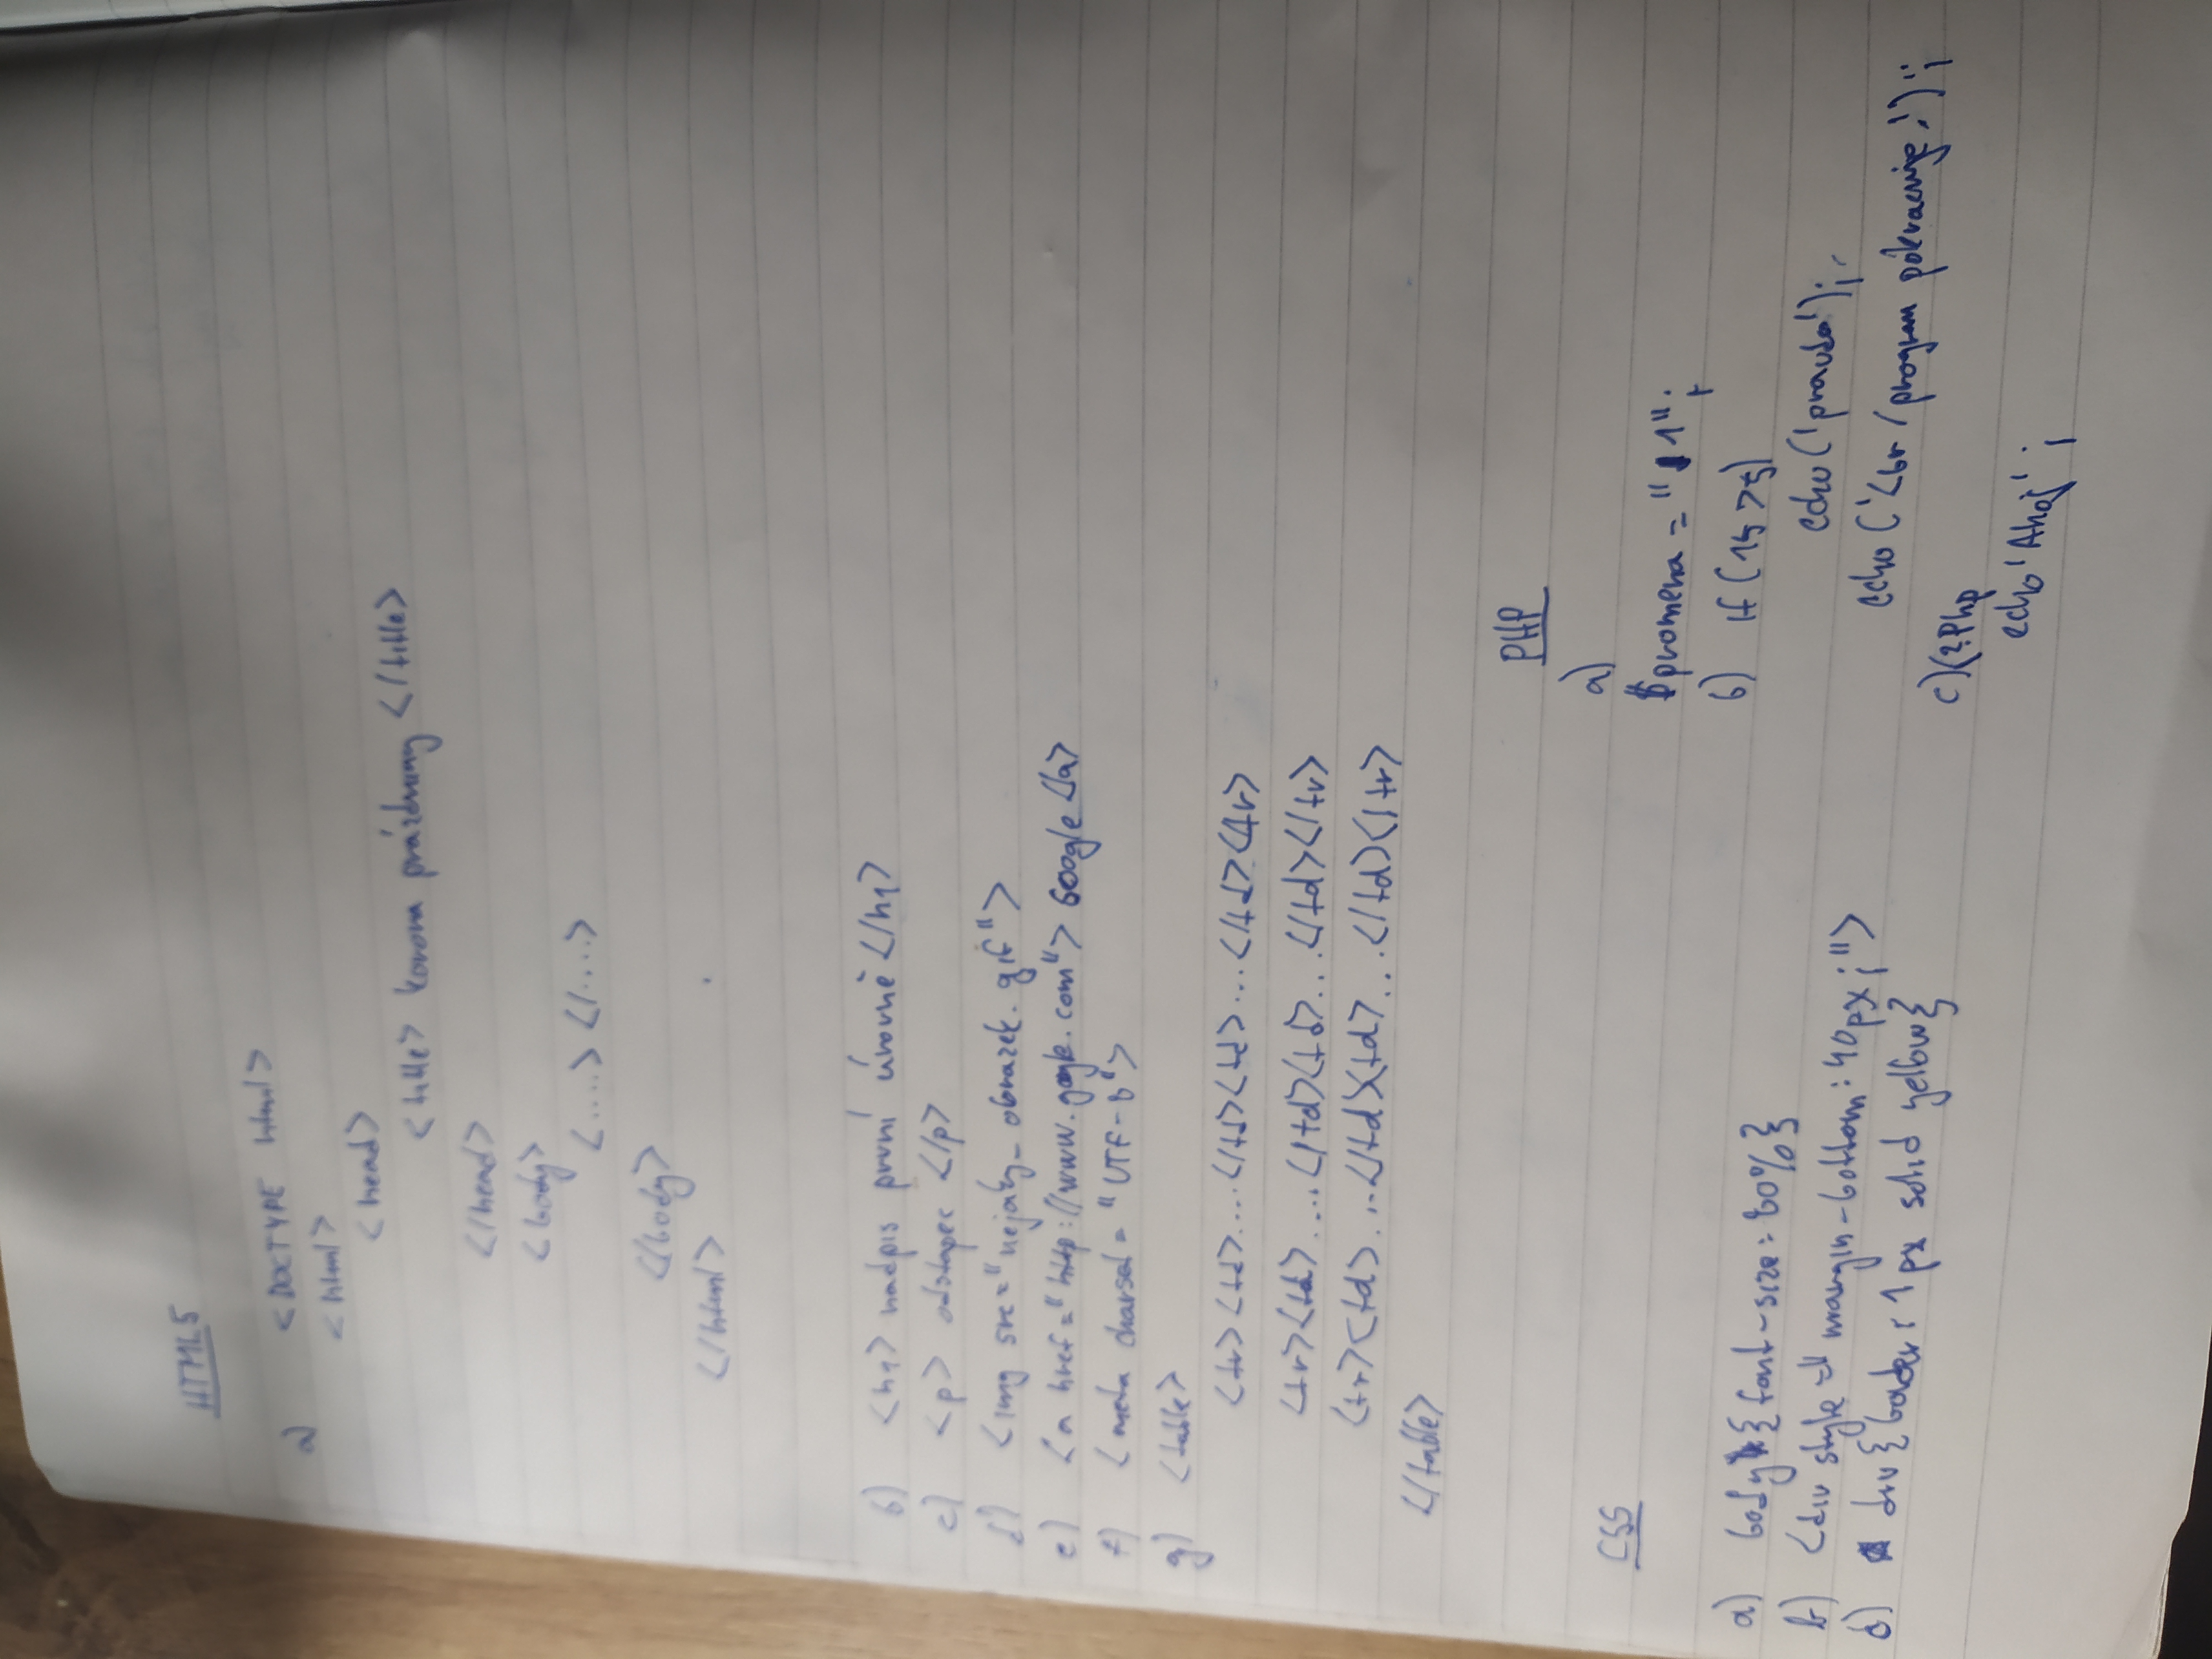 HTML5
a) <DOCTYPE html>
<html>
<head>
<title> korona prázdniny </title>
</head>
<body>
<....> </....>
</body>
</html>
b) <h1> nadpis první úrovně </h1>
c) <p> odstapec </p>
d) <img src="nejaky_obrazek.gif">
e) <a href="http://www.google.com"> Google </a>
f) <meta charset="UTF-8">
g) <table>
<tr><td>....</td><td>...</td></tr>
<tr><td>....</td><td>...</td></tr>
<tr><td>...</td><td>...</td></tr>
</table>
CSS
a) body{font-size: 80%}
b) <div style="margin-bottom: 40px;">
d) div{border: 1px solid yellow}
PHP
a)
$promena = "1";
b) if (15>5)
echo('pravda');
echo ('<br /program pokracuje.');
c) <?Php
echo 'Ahoj';